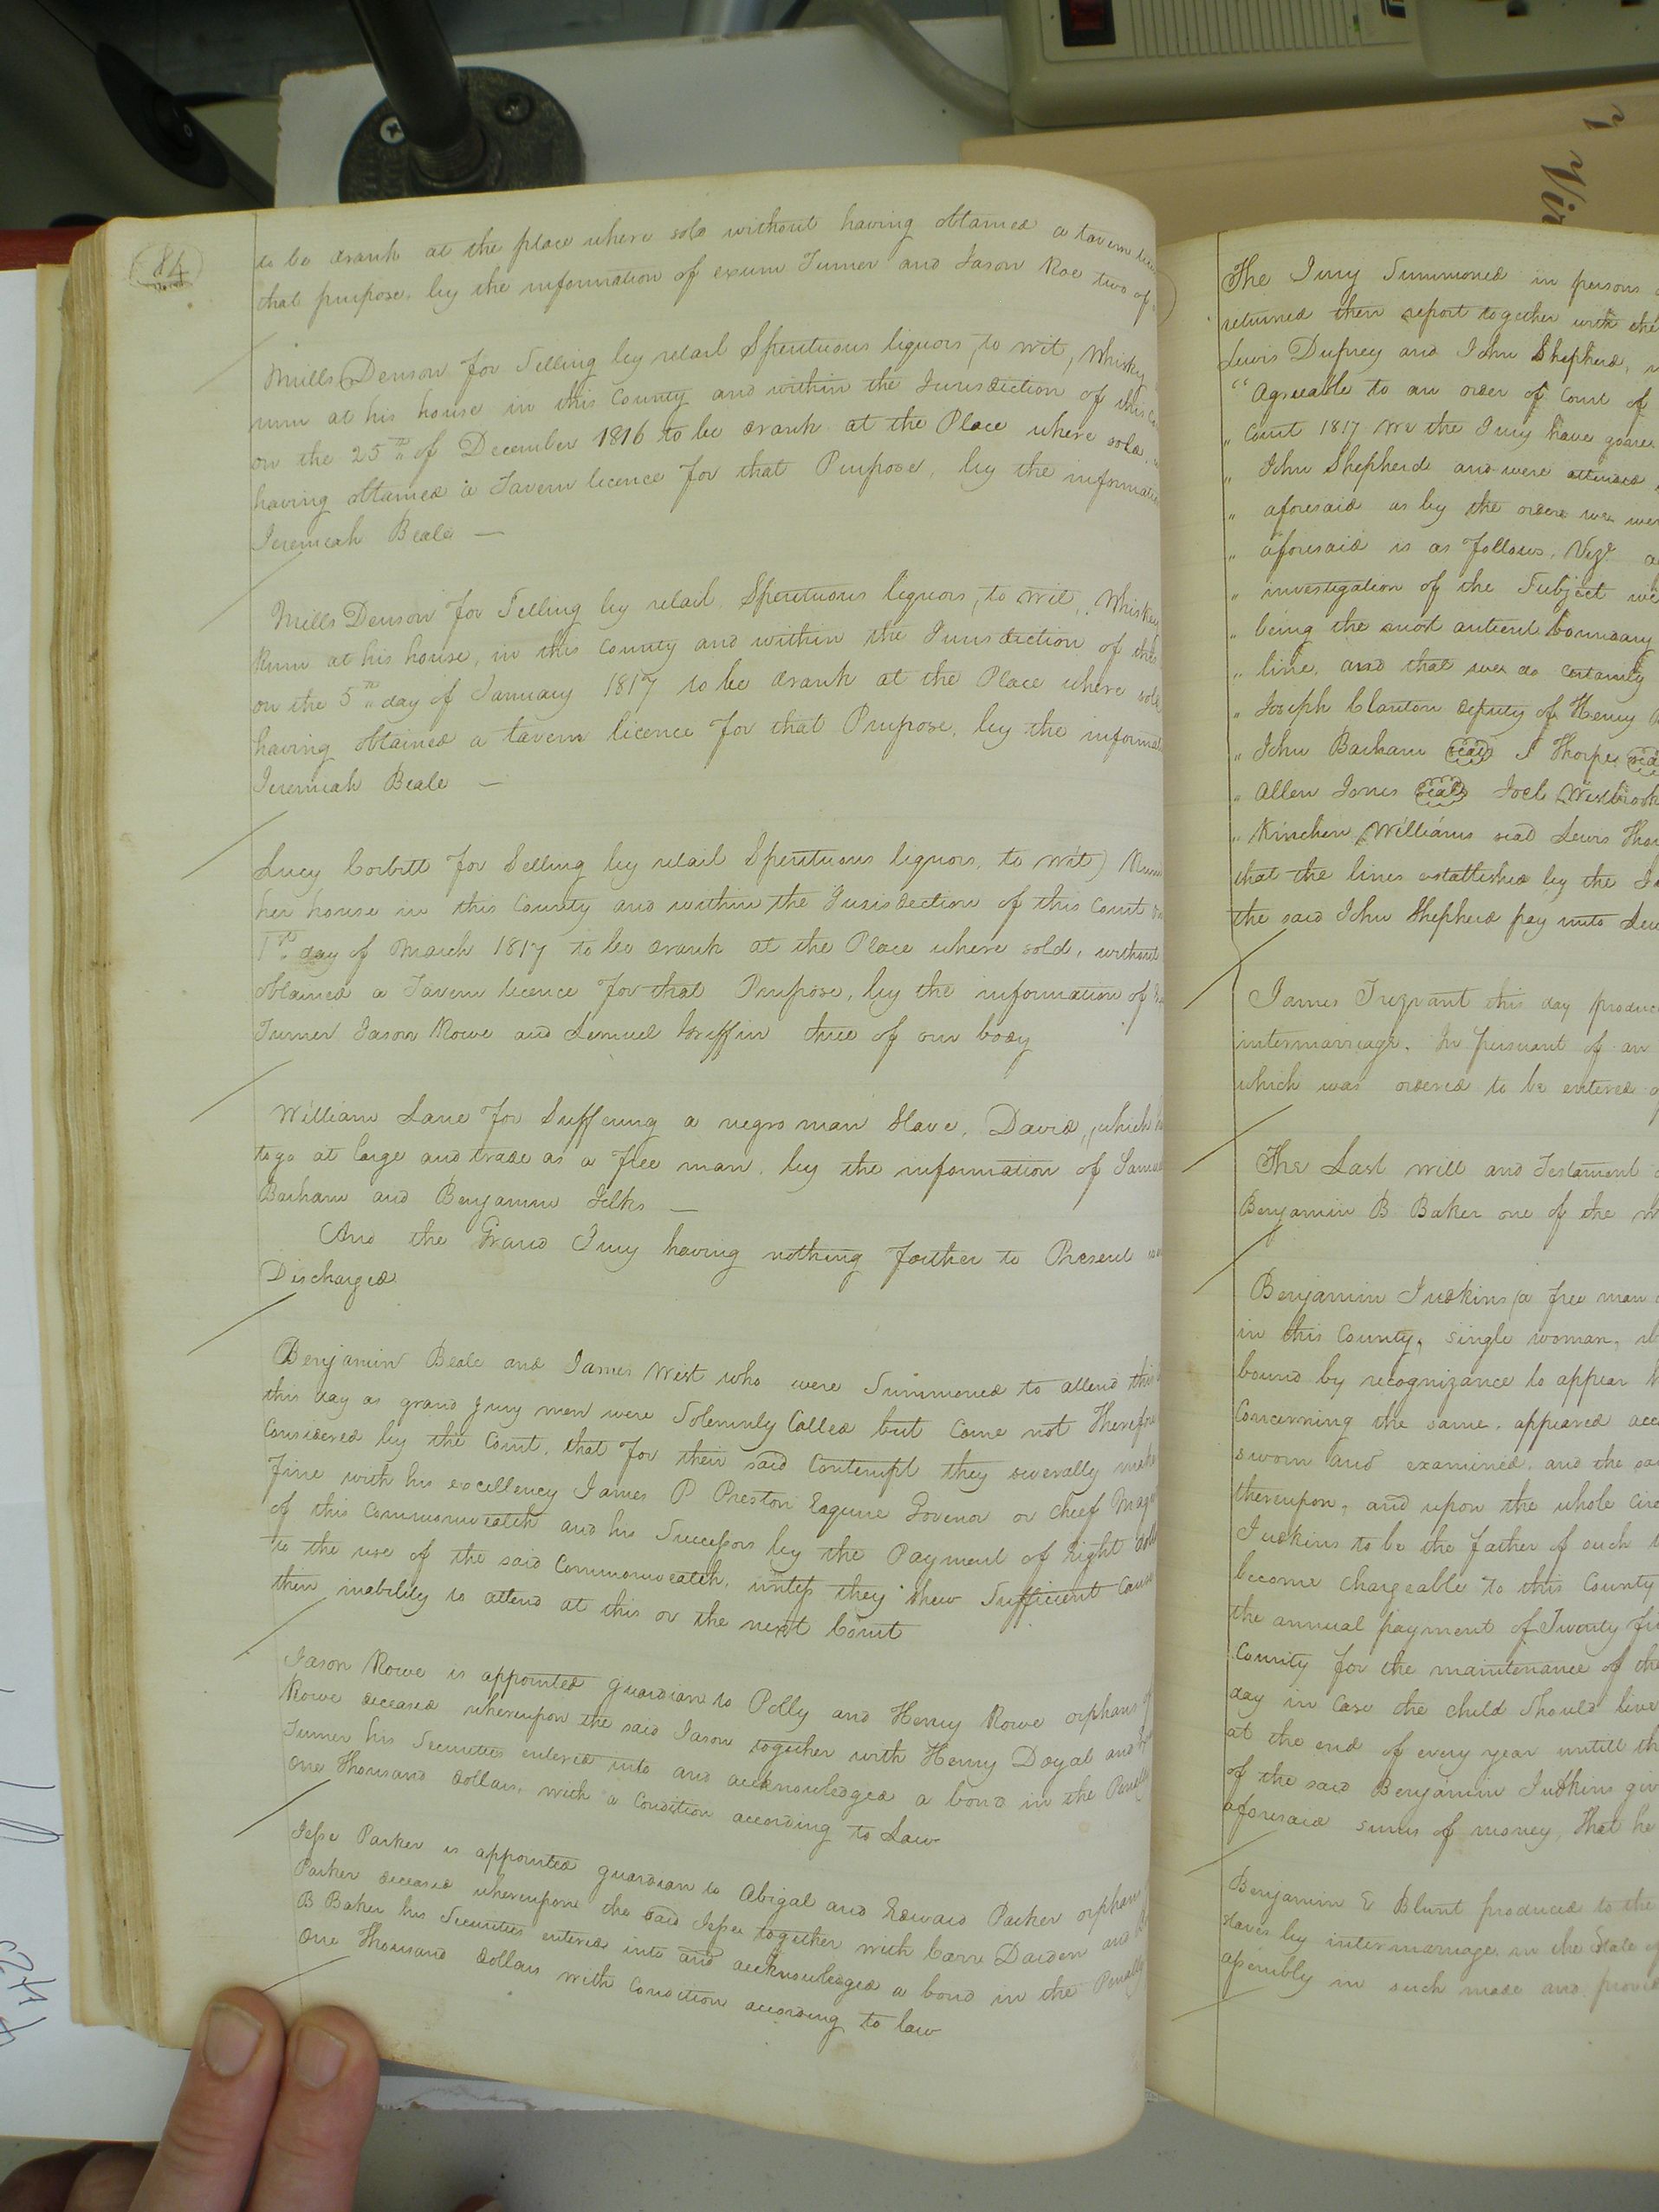 84
to be drank at the place where sold without having obtained a tavern
that purpose. by the information of exum Turner and Jason Roe two of
Mills Denson for Selling by retail Sperituous liquors, to wit, Whisky
rum at his house in this County and within the Jurisdiction of this
on the 25th of December 1816 to be drank at the Place where sold
having obtained a Tavern licence for that Purpose, by the
Jeremiah Beale —
Mills Denson for Selling by retail Sperituous liquors, to wit, Whisky
Rum at his house, in this County and within the Jurisdiction of this
on the 5th day of January 1817 to be drank at the Place where sold
having obtained a tavern licence for that Purpose, by the
Jeremiah Beale —
Lucy Corbitt for Selling by retail Sperituous liquors, to wit)
her house in this County and within the Jurisdiction of this Court
day of March 1817 to be drank at the Place where sold, without
obtained a Tavern licence for that Purpose, by the information of
Turner Jason Rowe and Lemuel Griffin three of our body
William Lane for Suffering a negro man Slave, David, which
to go at large and trade as a free man, by the information of
Barham and Benjamin Jelks —
And the Grand Jury having nothing farther to Present
Discharged
Benjamin Beale and James West who were Summoned to attend this
this day as grand jury men were Solemnly Called but Came not
Considered by the Court, that for their said Contempt they severally make
fine with his excellency James P Preston Esquire Govenor or cheef
of this Commonwealth and his Successors by the Payment of Eight
to the use of the said Commonwealth, unless they shew Sufficient Cause
their inability to attend at this or the next Court
Jason Rowe is appointed guardian to Polly and Henry Rowe orphans
Rowe deceased whereupon the said Jason together with Henry Doyal and
Turner his Securities entered into and acknowledged a bond in the
One Thousand dollars, with a Condition according to Law
Jesse Parker is appointed guardian to Abigal and Edward Parker orphans
Parker deceased whereupon the said Jesse together with Carr Darden and
B Baker his Securities entered into and acknowledged a bond in the Penalty
One Thousand dollars with Condition according to law
The Jury Summoned in persons
returned their report together with the
Lewis Duprey and John Shepherd,
“ Agreeable to an order of Court of
„ Court 1817 We the Jury have gone
„ John Shepherd and were attended
„ aforesaid as by the order we were
„ aforesaid is as follows, Vizt
„ investigation of the Subject we
„ being the most antient boundary
„ line, and that we do certainly
„ Joseph Clanton deputy of Henry
„ John Barham seal J Thorpe
„ Allen Jones seal Joel Westbrook
„ Kinchen Williams seal Lewis
that the lines established by the
the said John Shepherd pay unto
James Trezvant this day
intermarriage. In pursuant of an
which was ordered to be entered
The Last will and Testament
Benjamin B Baker one of the
Benjamin Judkins (a free man
in this County, single woman,
bound by recognizance to appear
Concerning the same, appeared
sworn and examined, and the
thereupon, and upon the whole
Judkins to be the father of such
become Chargeable to this County
the annual payment of Twenty
County for the maintenance of the
day in Case the child Should live
at the end of every year untill
of the said Benjamin Judkins
aforesaid sums of money, that he
Benjamin E Blunt produced to the
slaves by intermarriage in the State
assembly in such made and